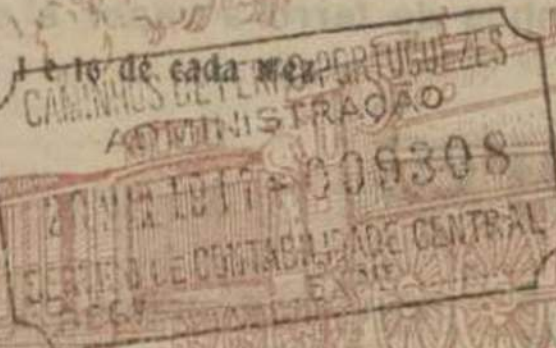 1 e 16 de cada mez.
CAMINHOS DE FERRO PORTUGUEZES
ADMINISTRAÇÃO
009308
SERVIÇO DE CONTABILIDADE CENTRAL